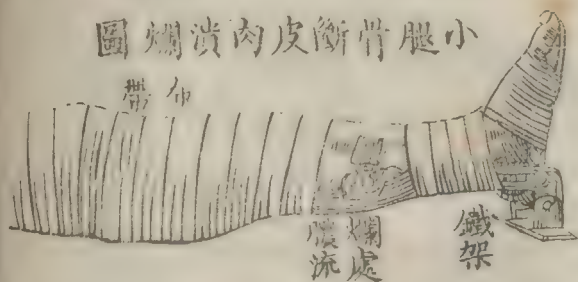 小腿骨斷皮肉潰爛圖
布帶
爛處膿流
鐵架